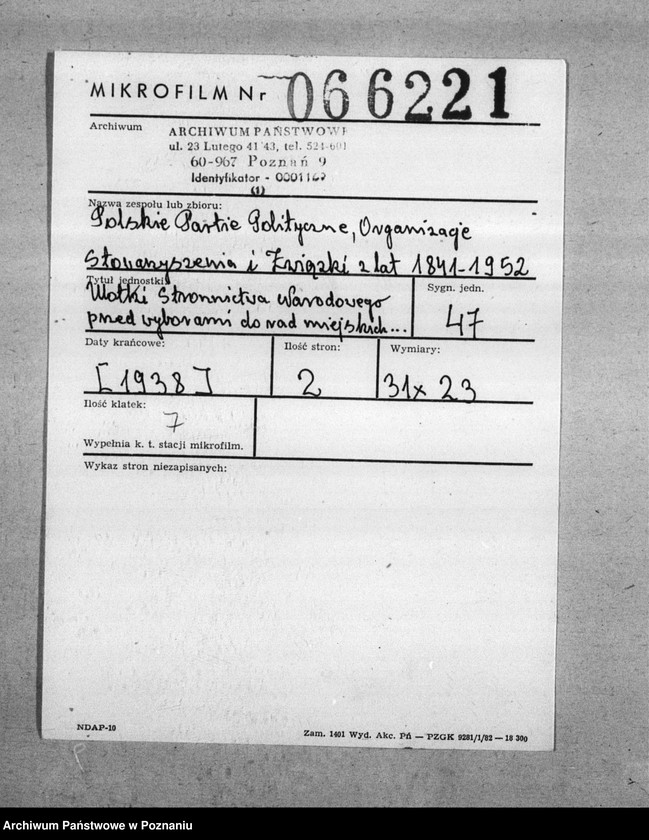 MIKROFILM Nr 066221
Archiwum
ARCHIWUM PAŃSTWOWE
ul. 23 Lutego 41/43, tel. 524-601
60-967 Poznań 9
Identyfikator - 0001149
(1)
Nazwa zespołu lub zbioru:
Polskie Partie Polityczne, Organizacje
Stowarzyszenia i Związki z lat 1841-1952
Tytuł jednostki:
Ulotki Stronnictwa Narodowego
przed wyborami do rad miejskich...
Sygn. jedn.
47
Daty krańcowe:
[1938]
Ilość stron:
2
Wymiary:
31x23
Ilość klatek:
7
Wypełnia k. t. stacji mikrofilm.
Wykaz stron niezapisanych:
NDAP-10
Zam. 1401 Wyd. Akc. Pń — PZGK 9281/1/82 — 18 300
Archiwum Państwowe w Poznaniu